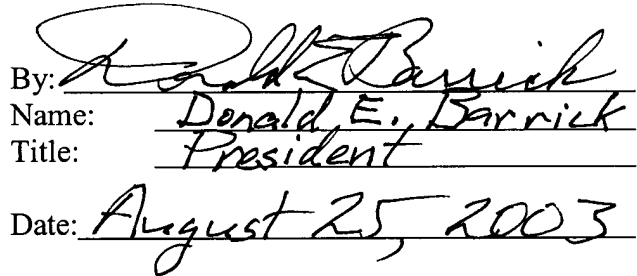 By: Donald E Barrick
Name: Donald E. Barrick
Title: President
Date: August 25, 2003